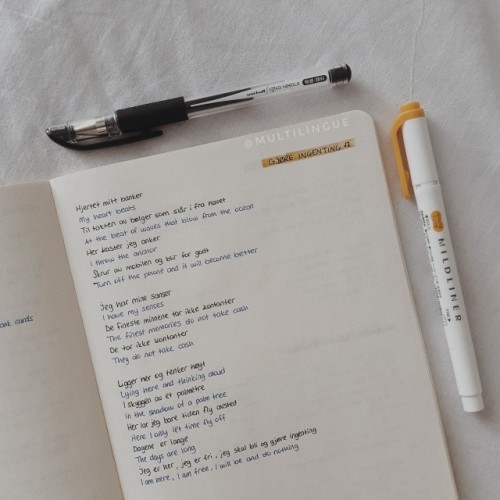 @MULTILINGUE
GJØRE INGENTING
Hjertet mitt banker
My heart beats
Til takten av bølger som slår i fra havet
At the beat of waves that blow from the ocean
Her kaster jeg anker
I throw the anchor
Skrur av mobilen og blir for godt
Turn off the phone and it will become better
Jeg har mine sanser
I have my senses
De fineste minnene tar ikke kontanter
The finest memories do not take cash
De tar ikke kontanter
They do not take cash
Ligger her og tenker høyt
Lying here and thinking aloud
I skyggen av et palmetre
In the shadow of a palm tree
Her lar jeg bare tiden fly avsted
Here I only let time fly off
Dagene er lange
The days are long
Jeg er her, jeg er fri, jeg skal bli og gjøre ingenting
I am here, I am free, I will be and do nothing
cards
MILDLINER